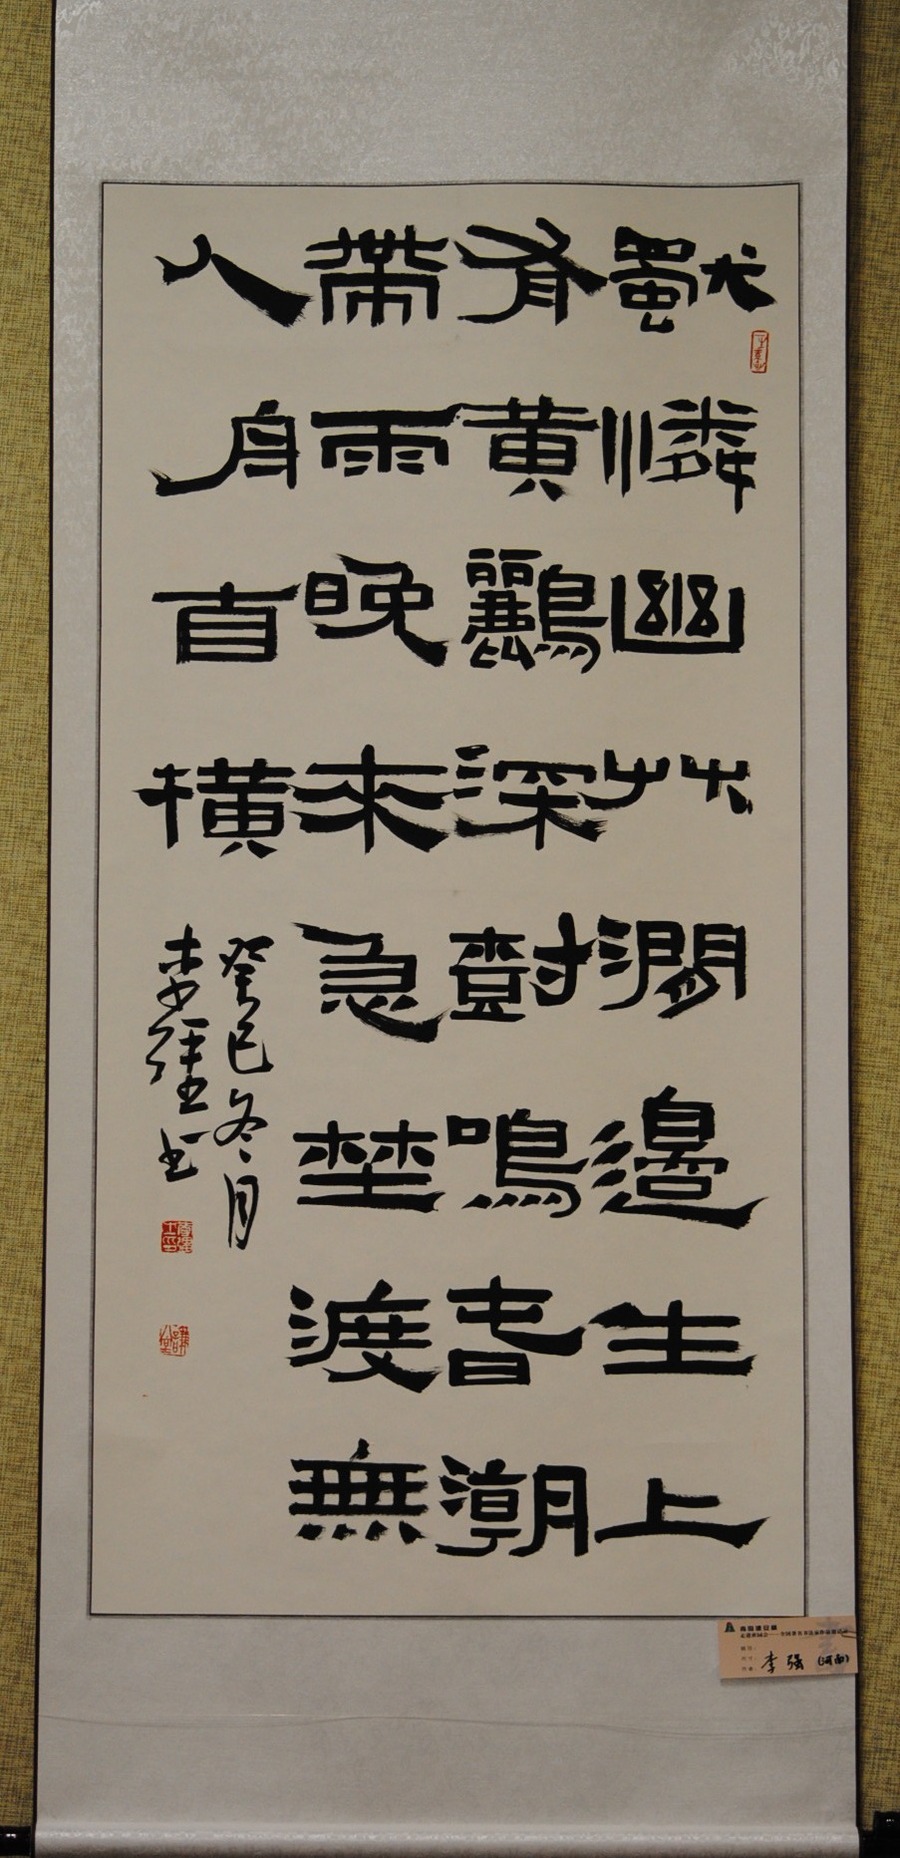 獨憐幽艸澗邊生上
有黃鸝深樹鳴旾潮
帶雨晚來急埜渡無
人舟自橫
癸巳冬月
李强书
李强 (河南)